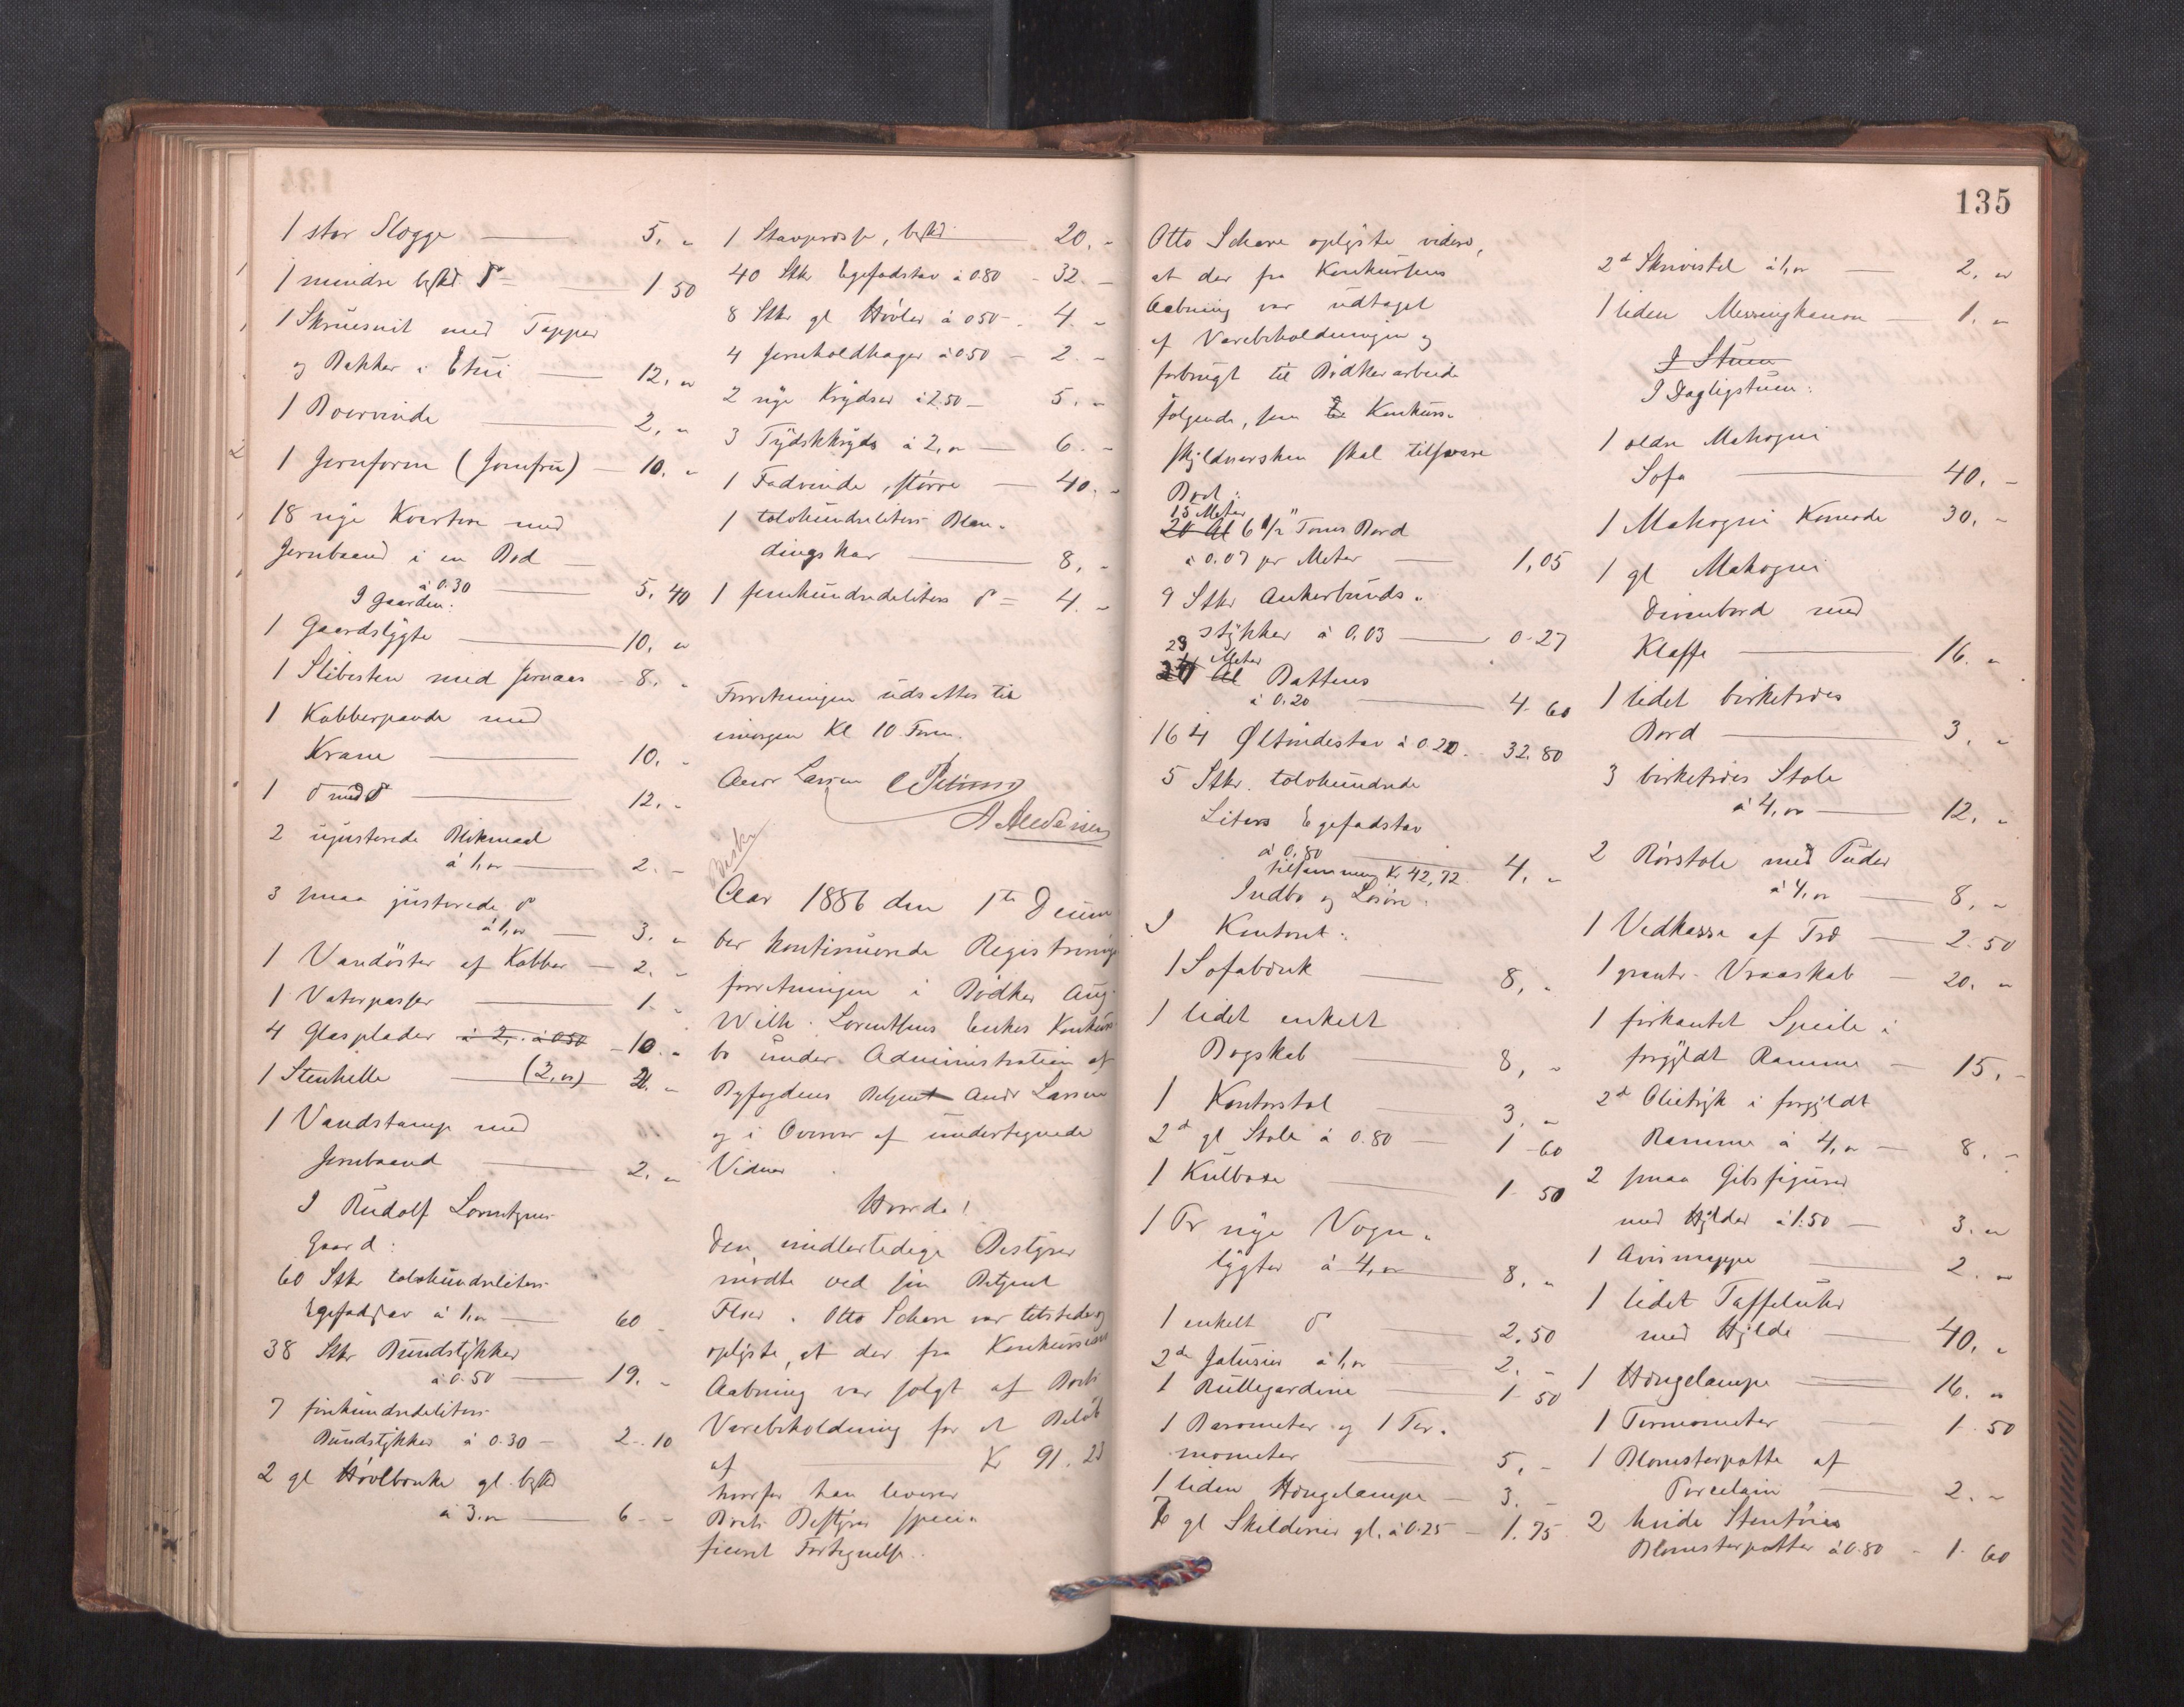 1 stor Slægge — 5. "
1 mindre bskd. do — 1 50
1 Skruesnit med Tapper
og Bakker i Etui — 12. "
1 Borvinde — 2. "
1 Jernform (Jomfru) — 10. "
18 nye Kvarter med
Jernbaand i en Bod
à 0.30 — 5. 40
I Gaarden:
1 Gaardslygte — 10. "
1 Slibesten med Jernaas — 8. "
1 Kobberpande med
Krane — 10. "
1 do med do — 12. "
2 ujusterede Blikmaal
à 1, " — 2. "
3 smaa justerede do
à 1, " — 3. "
1 Vandøster af Kobber — 2. "
1 Vaterpasser — 1. "
4 Glasplader à 2,. à 0.50 — 10. "
1 Stenhelle — (2, ") 2. "
1 Vandstamp med
Jernbaand — 2. "
I Rudolf Lorentzens
Gaard:
60 Stkr tolvhundreliters
Egefadstav à 1, " — 60 "
38 Stkr Bundstykker
à 0.50 — 19. "
7 firehundredeliters
Bundstykker à 0.30 — 2. 10
2 gl Høvlbænke gl. bskd
à 3. " — 6 "
1 Stavprässe, bskd — 20. "
40 Stkr Egefadstav à 0.80 — 32. "
8 Stkr gl Høvler à 0 50 — 4. "
4 Jernholdhager à 0.50 — 2. "
2 nye Krydser à 2.50 — 5. "
3 Tydskkryds à 2, " — 6. "
1 Fadvinde, større — 40. "
1 tolvhundreliters Blan-
dingskar — 8. "
1 femhundredeliters do — 4. "
Forretningen udsættes til
imorgen Kl 10 Form.
Andr Larsen
Aar 1886 den 1te Decem
ber kontinuerede Registrerings
forretningen i Bødker Aug.
Wilh. Lorentzens Enkes Konkurs
bo under Administration af
Byfogdens Betjent Andr Larsen
og i Overvær af undertegnede
Vidner.
Hvorda!
Den midlertidige Bestyrer
mødte ved sin Betjent
Floer. Otto Schere var tilstede og
oplyste, at der fra Konkursens
Aabning var solgt af Boets
Varebeholdning for et Beløb
af — Kr 91. 23
hvorfor han leverer
Boets Bestyrer speci-
ficeret Fortegnelse.
135
Otto Schere oplyste videre,
at der fra Konkursens
Aabning var udtaget
af Varebeholdningen og
forbrugt til Bødkerarbeide
følgende, som Konkurs-
skyldnersken skal tilsvare
Boet:
15 Meter
20 Al 6 1/2" Toms Bord
à 0.07 pr Meter — 1,05
9 Stkr Ankerbunds-
stykker à 0,03 — 0.27
23 Meter
Al Battens
à 0.20 — 4. 60
164 Øltøndestav à 0.20 — 32. 80
5 Stkr. tolvhundrede
Liters Egefadstav
à 0,80 — 4. "
tilsammen Kr 42,72
Indbo og Løsøre:
I Kontoret:
1 Sofabænk — 8. "
1 lidet enkelt
Bogskab — 8, "
1 Kontorstol — 3. "
2de gl Stole à 0.80 — 1 60
1 Kulboxe — 1. 50
1 Pr nye Vogn-
lygter à 4, " — 8. "
1 enkelt do — 2.50
2de Jalusier à 1, " — 2. "
1 Rullegardine — 1 50
1 Barometer og 1 Ter-
mometer — 5. "
1 liden Hængelampe — 3. "
7 gl Skilderier gl. à 0.25 — 1.75
2de Skrivestel à 1, " — 2. "
1 liden Messingkanon — 1. "
I Stuen
I Dagligstuen:
1 ældre Mahogni
Sofa — 40. "
1 Mahogni Komode 30. "
1 gl Mahogni
Divenbord med
Klaffe — 16. "
1 lidet birketræes
Bord — 3. "
3 birketræes Stole
à 4, " — 12. "
2 Rørstole med Puder
à 4, " — 8. "
1 Vedkasse af Træ — 2. 50
1 grantr. Vraaskab — 20. "
1 firkantet Speile i
forgyldt Ramme — 15. "
2de Olietryk i forgyldt
Ramme à 4, " — 8. "
2 smaa Gibsfigurer
med Hylder à 1.50 — 3. "
1 Avismappe — 2. "
1 lidet Taffeluhr
med Hylde — 40. "
1 Hængelampe — 16. "
1 Termometer — 1. 50
1 Blomsterpotte af
Porcelain — 2. "
2 hvide Stentøies
Blomsterpotter à 0.80 — 1. 60